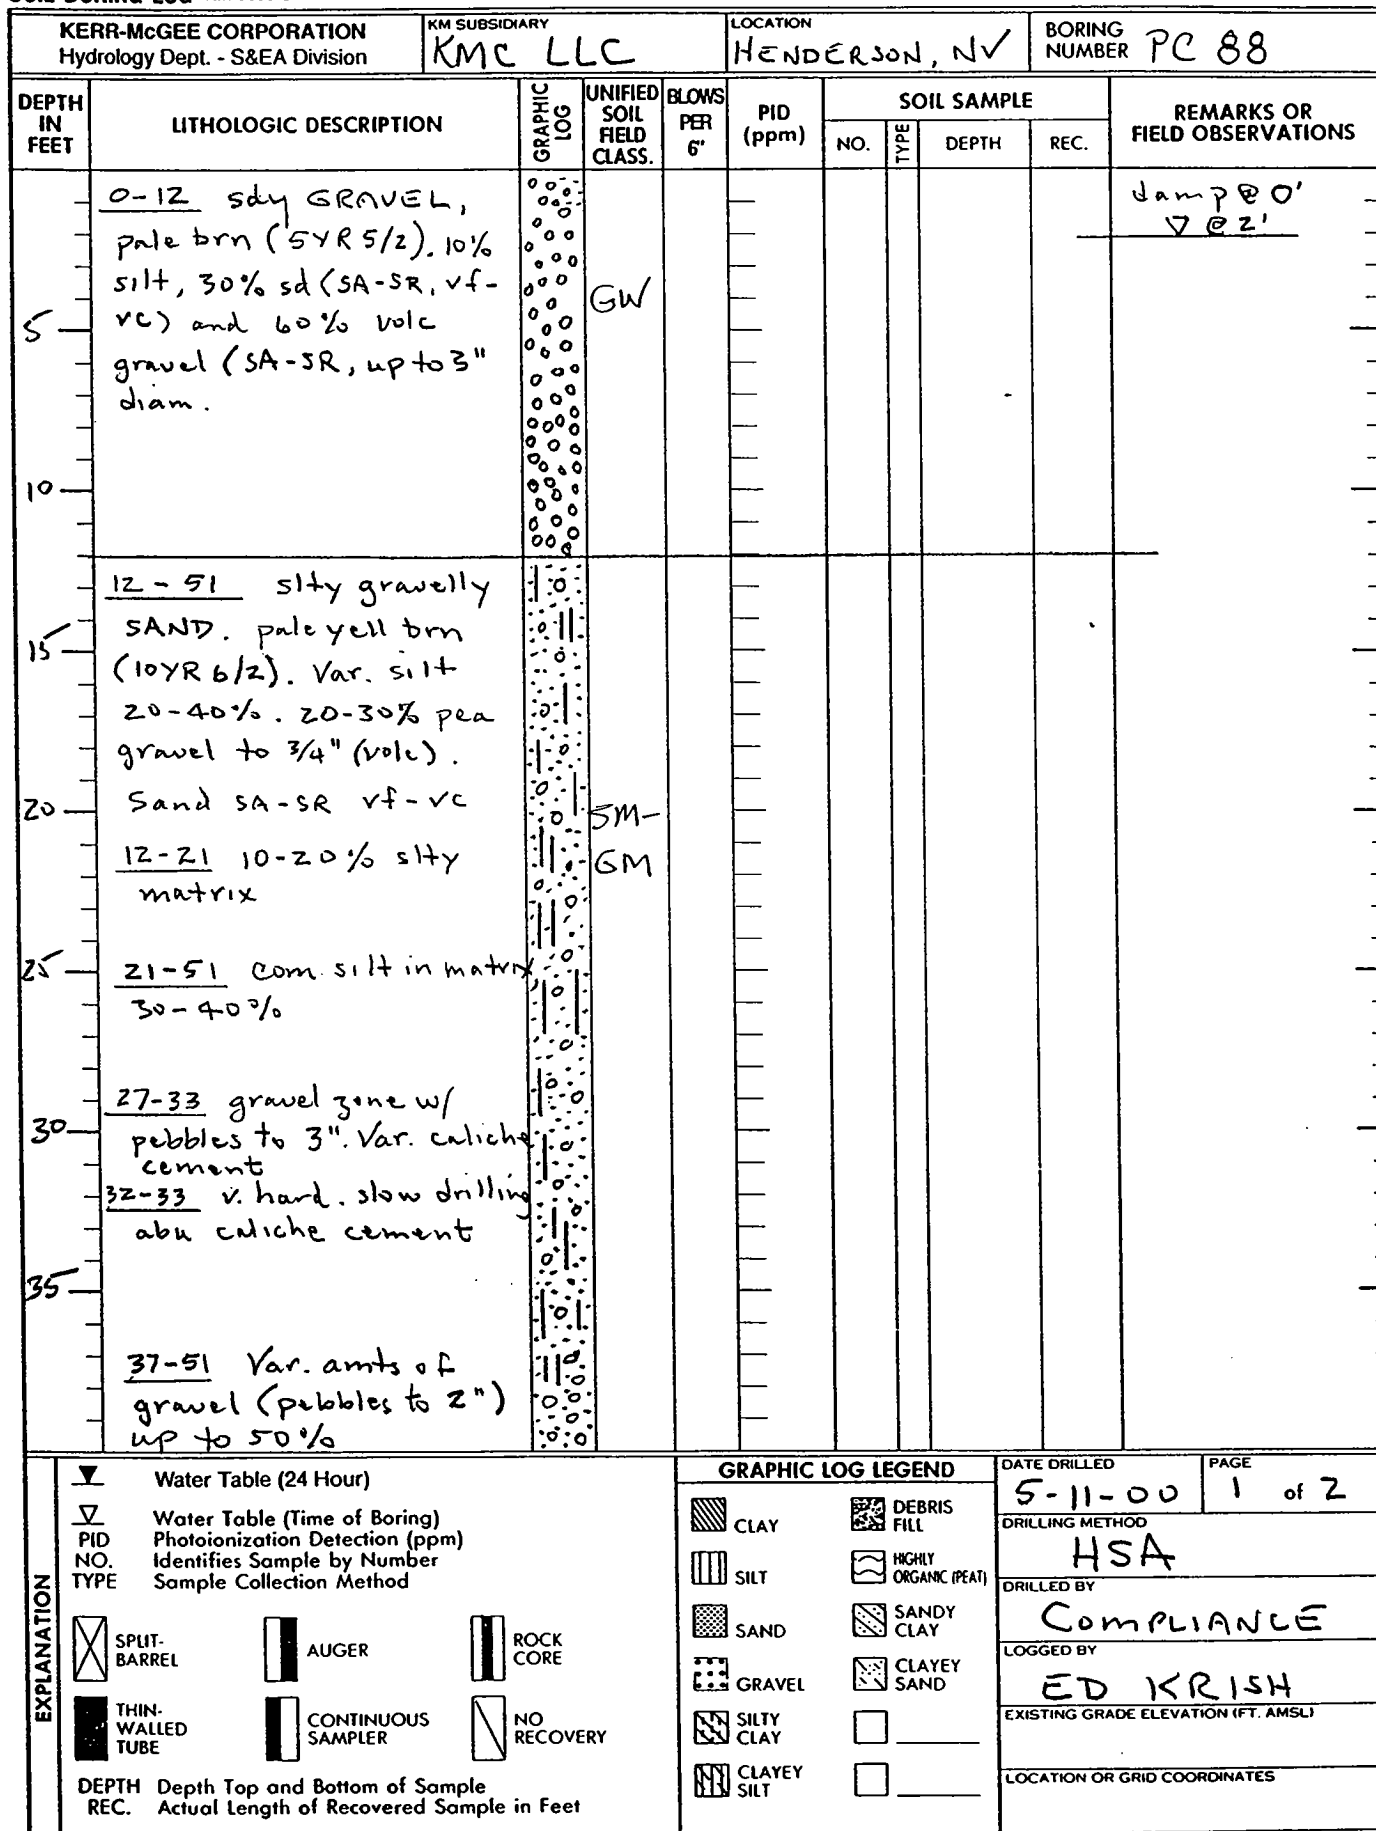 KERR-McGEE CORPORATION
Hydrology Dept. - S&EA Division
KM SUBSIDIARY
KMC LLC
LOCATION
HENDERSON, NV
BORING
NUMBER PC 88
DEPTH
IN
FEET
LITHOLOGIC DESCRIPTION
GRAPHIC
LOG
UNIFIED
SOIL
FIELD
CLASS.
BLOWS
PER
6"
PID
(ppm)
SOIL SAMPLE
NO.
TYPE
DEPTH
REC.
REMARKS OR
FIELD OBSERVATIONS
0-12 sdy GRAVEL,
pale brn (5YR 5/2). 10%
silt, 30% sd (SA-SR, vf-
vc) and 60% volc
gravel (SA-SR, up to 3"
diam.
GW
damp @ 0'
▽ @ 2'
5
10
12 - 51 slty gravelly
SAND. pale yell brn
(10YR 6/2). Var. silt
20-40%. 20-30% pea
gravel to 3/4" (volc).
Sand SA-SR vf-vc
12-21 10-20% slty
matrix
15
20
SM-
GM
21-51 com. silt in matrix
30-40%
25
27-33 gravel zone w/
pebbles to 3". Var. caliche
cement
30
32-33 v. hard. slow drilling
abu caliche cement
35
37-51 Var. amts of
gravel (pebbles to 2")
up to 50%
EXPLANATION
Water Table (24 Hour)
▽ Water Table (Time of Boring)
PID Photoionization Detection (ppm)
NO. Identifies Sample by Number
TYPE Sample Collection Method
SPLIT-
BARREL
AUGER
ROCK
CORE
THIN-
WALLED
TUBE
CONTINUOUS
SAMPLER
NO
RECOVERY
DEPTH Depth Top and Bottom of Sample
REC. Actual Length of Recovered Sample in Feet
GRAPHIC LOG LEGEND
CLAY
DEBRIS
FILL
SILT
HIGHLY
ORGANIC (PEAT)
SAND
SANDY
CLAY
GRAVEL
CLAYEY
SAND
SILTY
CLAY
CLAYEY
SILT
DATE DRILLED
5-11-00
PAGE
1 of 2
DRILLING METHOD
HSA
DRILLED BY
COMPLIANCE
LOGGED BY
ED KRISH
EXISTING GRADE ELEVATION (FT. AMSL)
LOCATION OR GRID COORDINATES